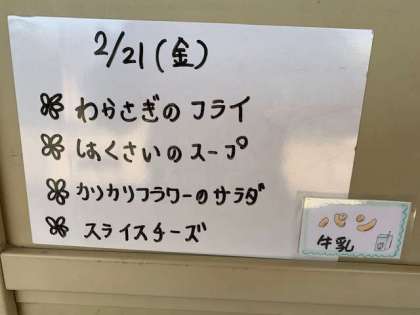 2/21(金)
わかさぎのフライ
はくさいのスープ
カリカリフラワーのサラダ
スライスチーズ
パン
牛乳